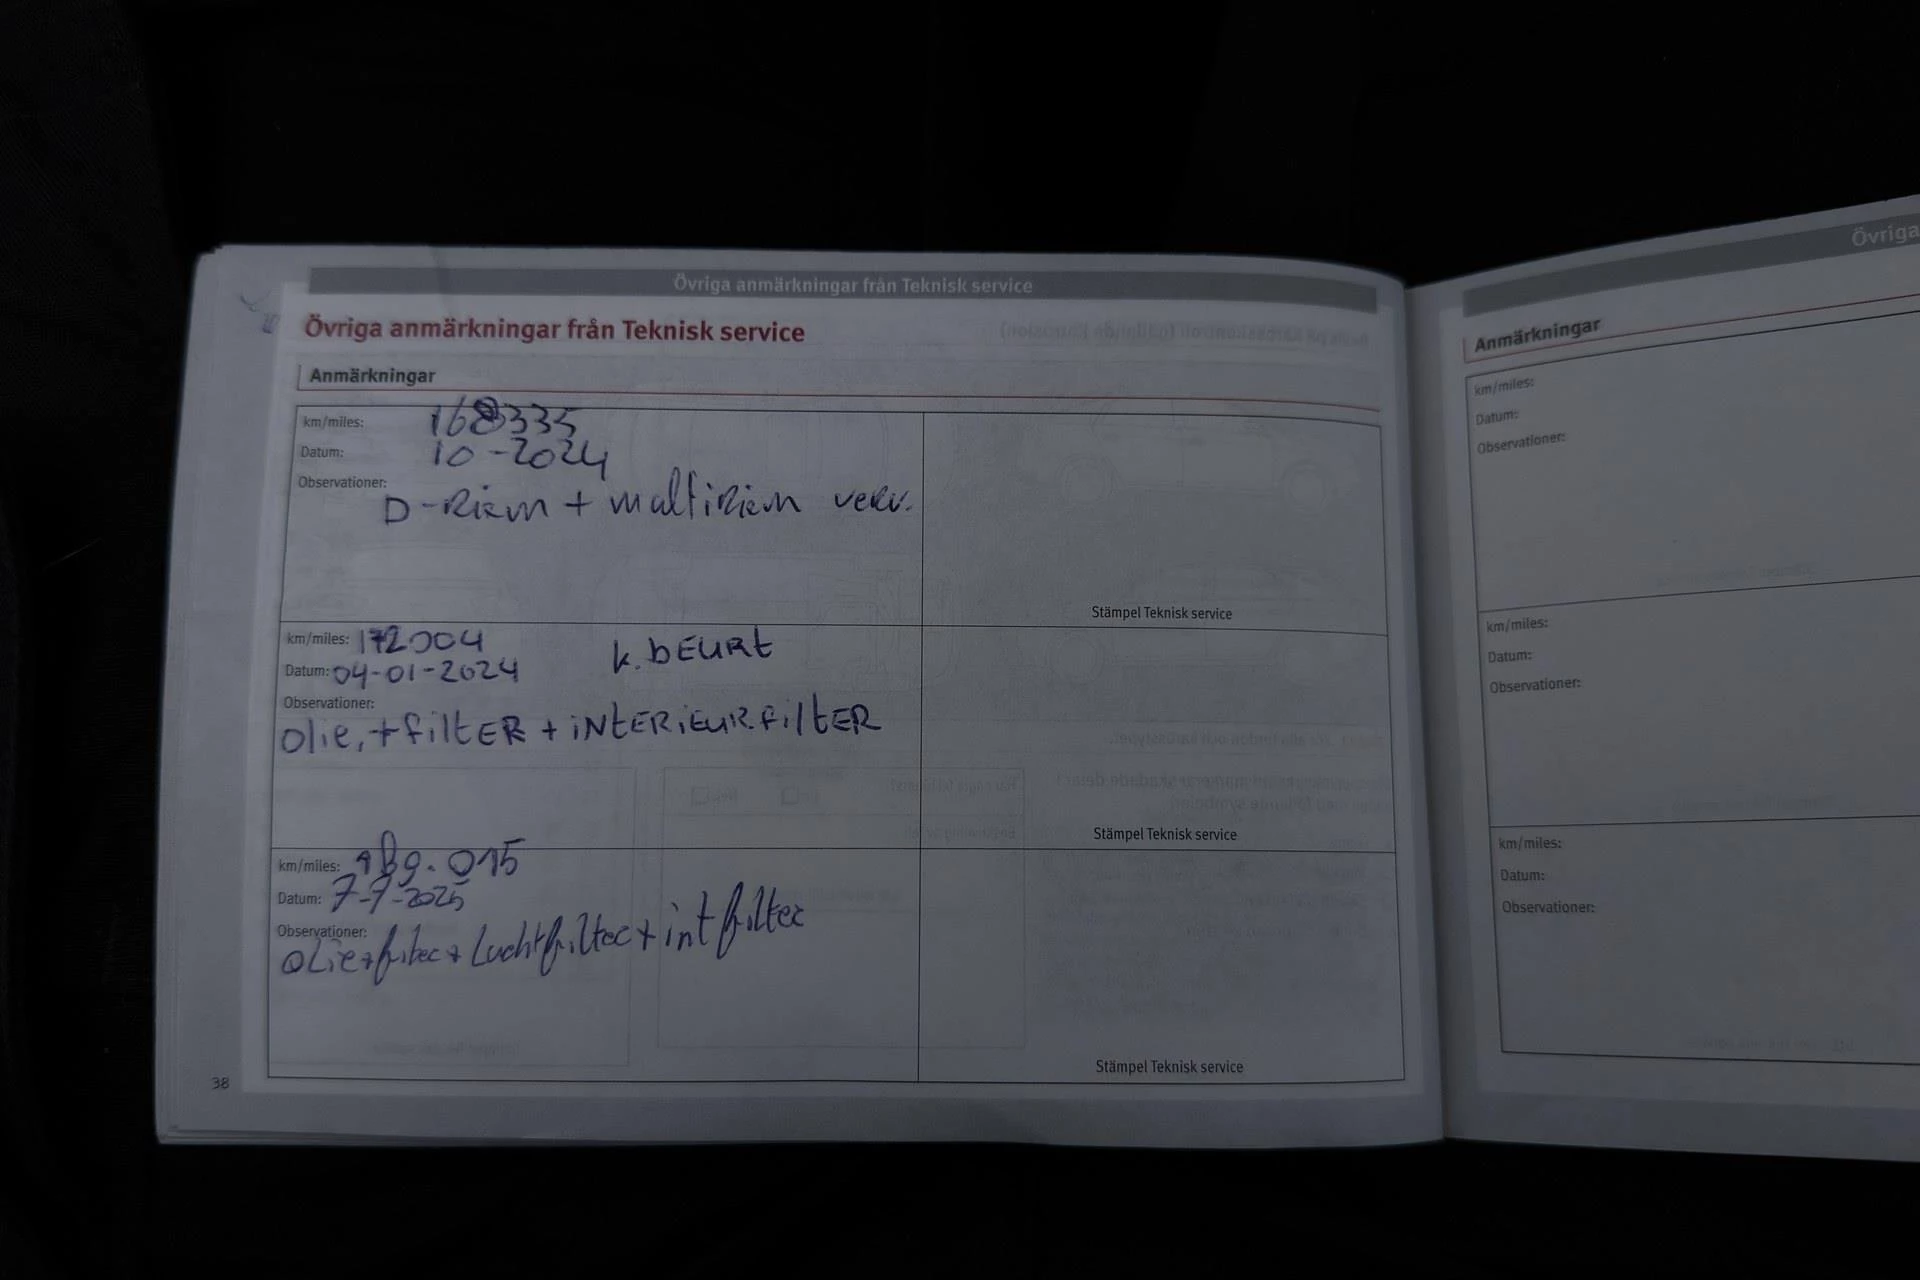 Övriga anmärkningar från Teknisk service
Övriga anmärkningar från Teknisk service
Anmärkningar
km/miles: 168335
Datum: 10-2024
Observationer:
D-Riem + multiRiem verv.
Stämpel Teknisk service
km/miles: 172004
k.bEURt
Datum: 04-01-2024
Observationer:
Olie,+filtER + iNtERiEUR.FiltER
Stämpel Teknisk service
km/miles: 189.015
Datum: 7-7-2025
Observationer:
OLie+filter+Luchtfilter+int filter
Stämpel Teknisk service
38
Övriga
Anmärkningar
km/miles:
Datum:
Observationer:
km/miles:
Datum:
Observationer:
km/miles:
Datum:
Observationer: